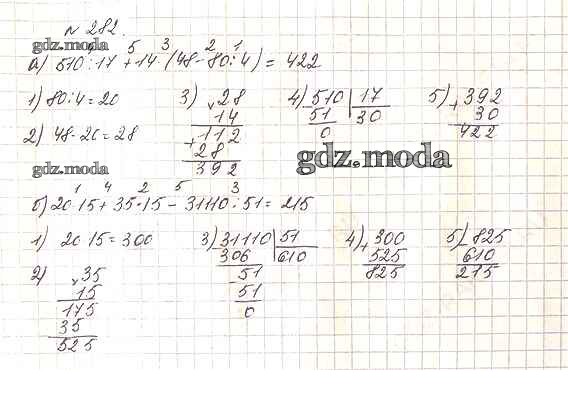 № 282.
gdz.moda
4 5 3 2 1
а) 510 : 17 + 14 · (48 - 80 : 4) = 422
1) 80 : 4 = 20
2) 48 - 20 = 28
3) × 28
14
+ 112
28
392
4) 510 | 17
51 | 30
0
5) + 392
30
422
gdz.moda
gdz.moda
1 4 2 5 3
б) 20 15 + 35 · 15 - 31110 : 51 = 215
1) 20 15 = 300
2) × 35
15
175
35
525
3) 31110 | 51
306 | 610
51
51
0
4) + 300
525
825
5) - 825
610
215